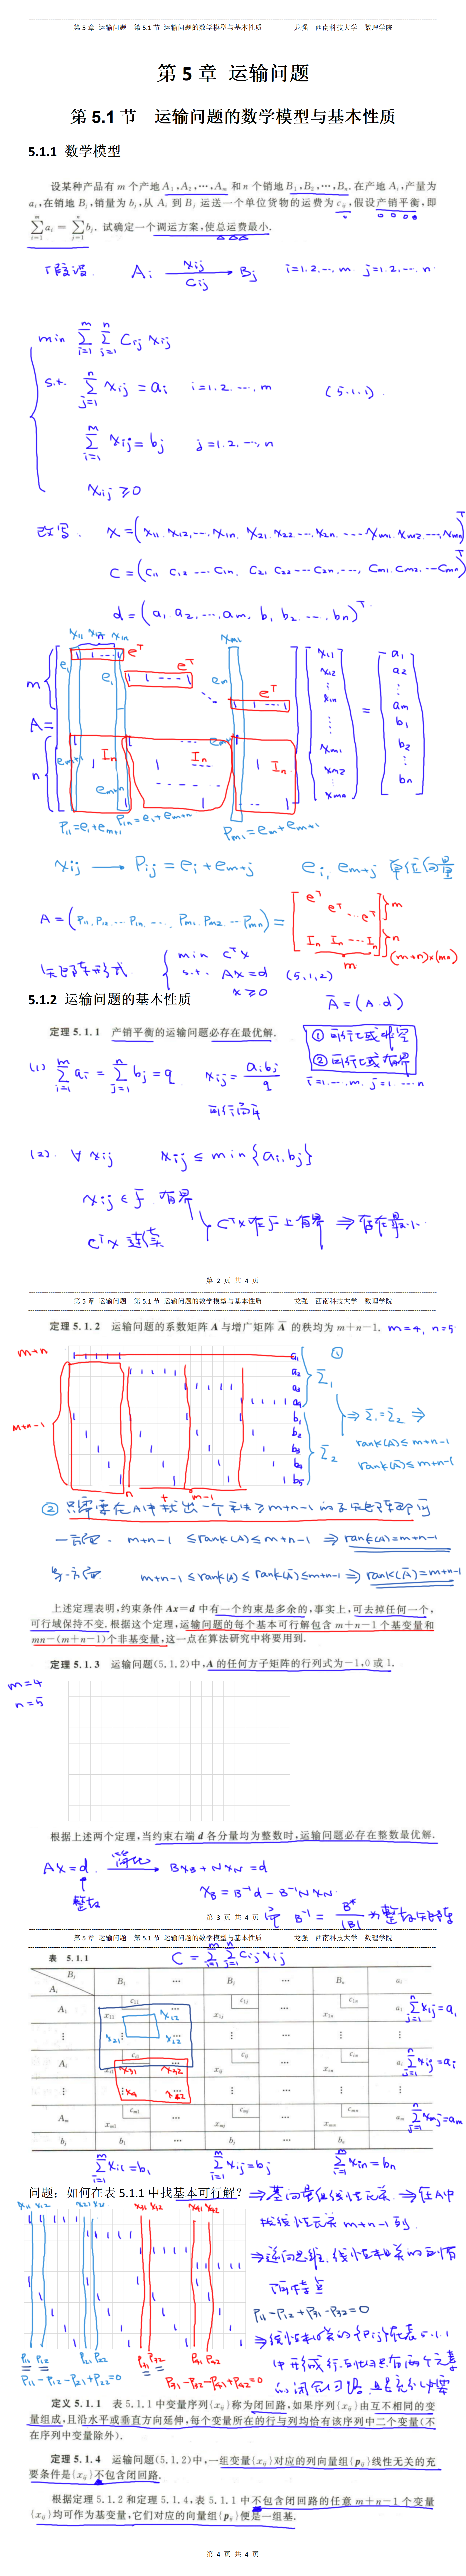 第 5 章 运输问题 第 5.1 节 运输问题的数学模型与基本性质 龙强 西南科技大学 数理学院
第 5 章 运输问题
第 5.1 节 运输问题的数学模型与基本性质
5.1.1 数学模型
设某种产品有 m 个产地 A₁,A₂,⋯,Aₘ 和 n 个销地 B₁,B₂,⋯,Bₙ. 在产地 Aᵢ,产量为
aᵢ,在销地 Bⱼ,销量为 bⱼ,从 Aᵢ 到 Bⱼ 运送一个单位货物的运费为 cᵢⱼ,假设产销平衡,即
∑_{i=1}^{m} aᵢ = ∑_{j=1}^{n} bⱼ. 试确定一个调运方案,使总运费最小.
假设 Aᵢ xᵢⱼ → cᵢⱼ Bⱼ i=1,2,⋯,m j=1,2,⋯,n
min ∑_{i=1}^{m} ∑_{j=1}^{n} cᵢⱼ xᵢⱼ
s.t. ∑_{j=1}^{n} xᵢⱼ = aᵢ i=1,2,⋯,m (5.1.1)
∑_{i=1}^{m} xᵢⱼ = bⱼ j=1,2,⋯,n
xᵢⱼ ≥ 0
改写. x = (x₁₁, x₁₂,⋯,x₁ₙ, x₂₁, x₂₂,⋯,x₂ₙ,⋯,xₘ₁, xₘ₂,⋯,xₘₙ)ᵀ
c = (c₁₁ c₁₂ ⋯ c₁ₙ, c₂₁ c₂₂ ⋯ c₂ₙ,⋯, cₘ₁, cₘ₂,⋯cₘₙ)ᵀ
d = (a₁, a₂,⋯,aₘ, b₁, b₂,⋯,bₙ)ᵀ
x₁₁ x₁₂ x₁ₙ xₘ₁
m e₁ 1 1 ⋯ 1 eᵀ x₁₁ a₁
e₁ 1 1 ⋯ 1 eᵀ eₘ x₁₂ a₂
1 1 ⋯ 1 eᵀ x₁ₙ aₘ
A = = b₁
n Iₙ Iₙ Iₙ xₘ₁ b₂
eₘ₊₁ eₘ₊ₙ eₘ₊₁ xₘ₂
xₘₙ bₙ
P₁₁=e₁+eₘ₊₁ P₁ₙ=e₁+eₘ₊ₙ Pₘ₁=eₘ+eₘ₊₁
xᵢⱼ → Pᵢⱼ = eᵢ+eₘ₊ⱼ eᵢ, eₘ₊ⱼ 单位向量
A = (P₁₁, P₁₂,⋯ P₁ₙ, ⋯, Pₘ₁ Pₘ₂ ⋯ Pₘₙ) = eᵀ eᵀ ⋯ eᵀ } m
Iₙ Iₙ ⋯ Iₙ } n
m (m+n)×(mn)
矩阵形式. min cᵀx
s.t. Ax=d (5.1.2)
x ≥ 0
5.1.2 运输问题的基本性质
Ā = (A, d)
定理 5.1.1 产销平衡的运输问题必存在最优解.
① 可行域非空
② 可行域有界
(1) ∑_{i=1}^{m} aᵢ = ∑_{j=1}^{n} bⱼ = q xᵢⱼ = aᵢbⱼ/q i=1,⋯,m, j=1,⋯,n
可行解
(2). ∀ xᵢⱼ xᵢⱼ ≤ min{aᵢ,bⱼ}
xᵢⱼ ∈ F 有界
cᵀx 连续
cᵀx在F上有界 ⇒ 存在最小.
第 2 页 共 4 页
第 5 章 运输问题 第 5.1 节 运输问题的数学模型与基本性质 龙强 西南科技大学 数理学院
定理 5.1.2 运输问题的系数矩阵 A 与增广矩阵 Ā 的秩均为 m+n−1. m=4, n=5
m+n
①
a₁
a₂
a₃
a₄
∑₁
b₁
b₂
b₃
b₄
b₅
∑₂
m+n-1
⇒ ∑₁=∑₂ ⇒
rank(A)≤m+n-1
rank(Ā)≤m+n-1
n + m-1
② 只需要在A中找出一个秩≥m+n-1的子矩阵即可
一方面. m+n-1 ≤rank(A)≤m+n-1 ⇒ rank(A)=m+n-1
另一方面 m+n-1≤rank(A)≤rank(Ā)≤m+n-1⇒ rank(Ā)=m+n-1
上述定理表明,约束条件 Ax=d 中有一个约束是多余的,事实上,可去掉任何一个,
可行域保持不变. 根据这个定理,运输问题的每个基本可行解包含 m+n−1 个基变量和
mn−(m+n−1)个非基变量,这一点在算法研究中将要用到.
定理 5.1.3 运输问题(5.1.2)中,A 的任何方子矩阵的行列式为−1,0 或 1.
m=4
n=5
根据上述两个定理,当约束右端 d 各分量均为整数时,运输问题必存在整数最优解.
Ax=d. → Bx_B + Nx_N = d
整数
x_B = B⁻¹d - B⁻¹N x_N.
B⁻¹ = B*/|B| 为整数矩阵
第 3 页 共 4 页
第 5 章 运输问题 第 5.1 节 运输问题的数学模型与基本性质 龙强 西南科技大学 数理学院
表 5.1.1
C = ∑_{i=1}^{m} ∑_{j=1}^{n} cᵢⱼxᵢⱼ
Aᵢ Bⱼ B₁ ⋯ Bⱼ ⋯ Bₙ aᵢ
A₁ x₁₁ c₁₁ x₁₂ ⋯ x₁ⱼ c₁ⱼ ⋯ x₁ₙ c₁ₙ a₁ ∑_{j=1}^{n} x₁ⱼ=a₁
⋮ x₂₁ x₂₂ ⋮ ⋮ ⋮
Aᵢ xᵢ₁ cᵢ₁ x₃₁ x₃₂ ⋯ xᵢⱼ cᵢⱼ ⋯ xᵢₙ cᵢₙ aᵢ ∑_{j=1}^{n} xᵢⱼ=aᵢ
⋮ x₄₁ x₄₂ ⋮ ⋮ ⋮
Aₘ xₘ₁ cₘ₁ ⋯ xₘⱼ cₘⱼ ⋯ xₘₙ cₘₙ aₘ ∑_{j=1}^{n} xₘⱼ=aₘ
bⱼ b₁ ⋯ bⱼ ⋯ bₙ
∑_{i=1}^{m} xᵢ₁=b₁ ∑_{i=1}^{m} xᵢⱼ=bⱼ ∑_{i=1}^{m} xᵢₙ=bₙ
问题：如何在表 5.1.1 中找基本可行解？ ⇒基向量组线性无关. ⇒在A中
x₁₁ x₁₂ x₂₁ x₂₂ x₃₁ x₃₂ x₄₁ x₄₂
找线性无关 m+n-1 列.
⇒逆向思维. 线性相关的列有
何特点
P₁₁-P₁₂+P₃₁-P₃₂=0
⇒线性相关的 在表5.1.1
中形成行与 只有两个元素
的闭合回路.
P₁₁ P₁₂ P₂₁ P₂₂ P₃₁ P₃₂ P₄₁ P₄₂
P₁₁-P₁₂-P₂₁+P₂₂=0 P₃₁-P₃₂-P₄₁+P₄₂=0
定义 5.1.1 表 5.1.1 中变量序列{xᵢⱼ}称为闭回路,如果序列{xᵢⱼ}由互不相同的变
量组成,且沿水平或垂直方向延伸,每个变量所在的行与列均恰有该序列中二个变量(不
在序列中变量除外).
定理 5.1.4 运输问题(5.1.2)中,一组变量{xᵢⱼ}对应的列向量组{pᵢⱼ}线性无关的充
要条件是{xᵢⱼ}不包含闭回路.
根据定理 5.1.2 和定理 5.1.4,表 5.1.1 中不包含闭回路的任意 m+n−1 个变量
{xᵢⱼ}均可作为基变量,它们对应的向量组{pᵢⱼ}便是一组基.
第 4 页 共 4 页